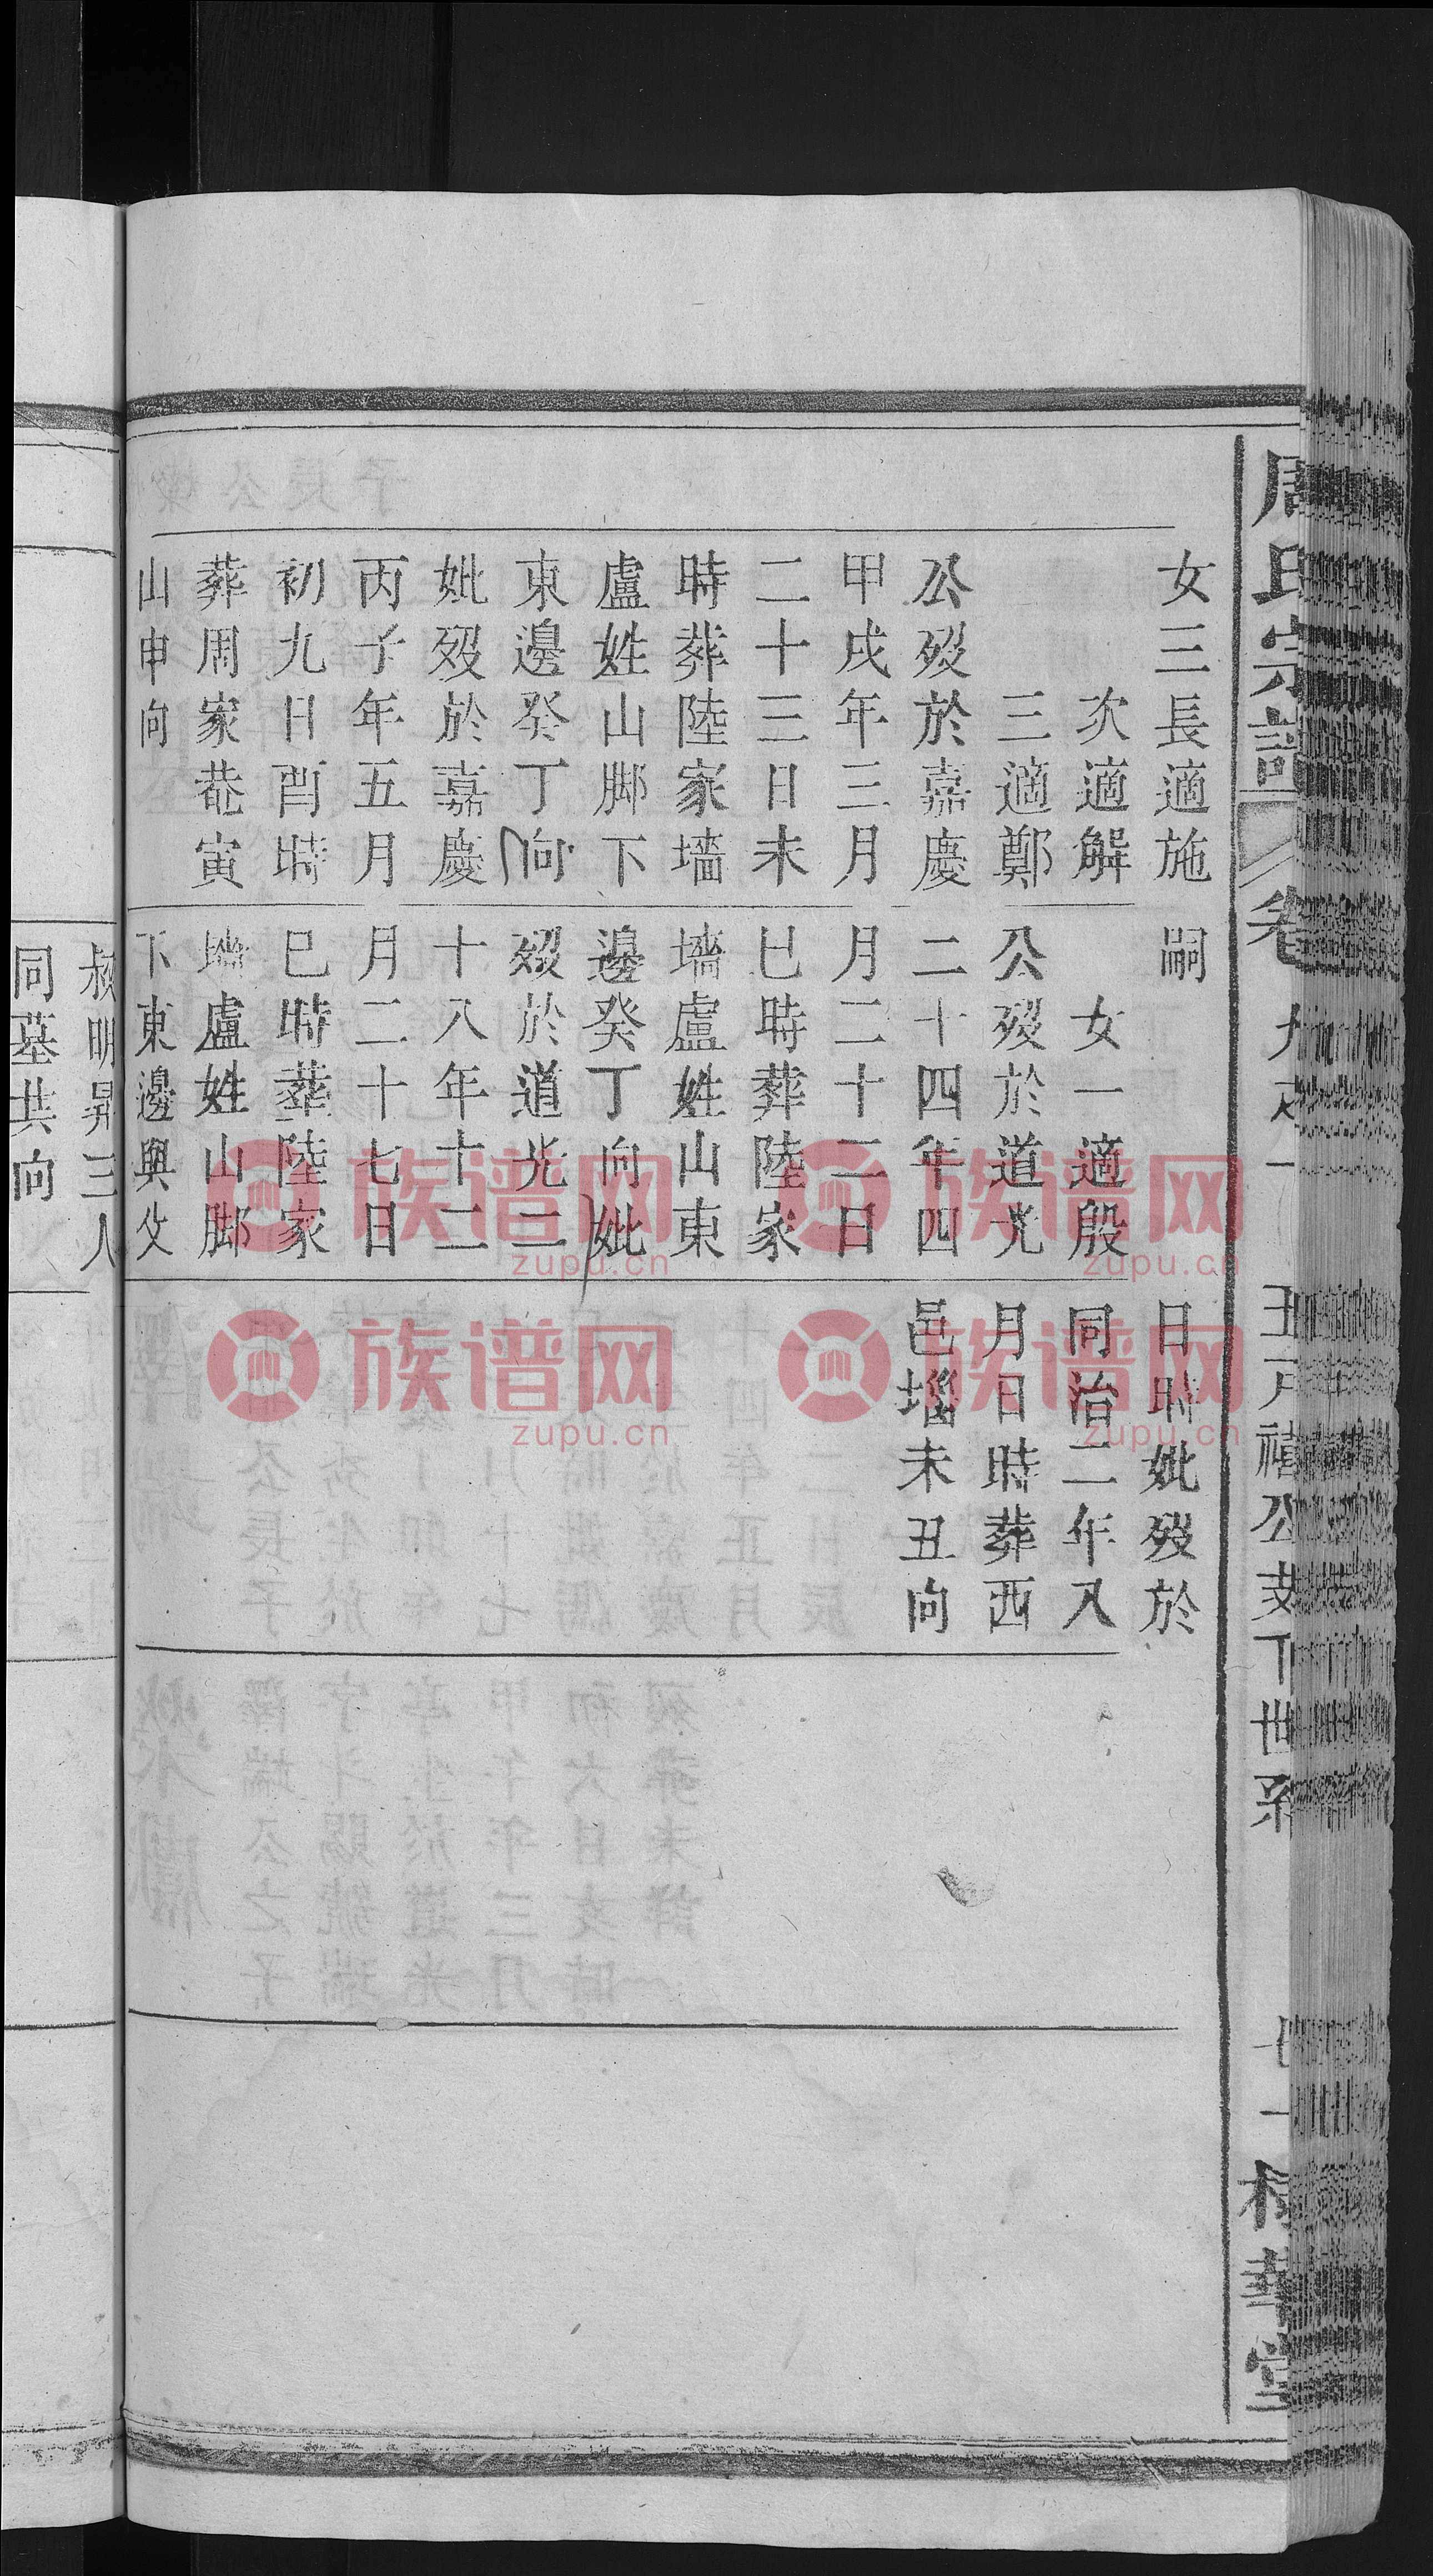 周氏宗譜
卷
公支下世系
華堂
女三長適施
次適解
三適鄭
公歿於嘉慶
甲戌年三月
二十三日未
時葬陸家墻
盧姓山脚下
東邊癸丁向
妣歿於嘉慶
丙子年五月
初九日酉時
葬周家菴寅
山申向
嗣
女一適殷
公歿於道光
二十四年四
月二十二日
巳時葬陸家
墻盧姓山東
邊癸丁向妣
歿於道光二
十八年十二
月二十七日
巳時葬陸家
墻盧姓山脚
下東邊與父
叔明昇三人
同墓共向
日時妣歿於
同治二年八
月日時葬西
邑堖未丑向
族谱网
zupu.cn
族谱网
zupu.cn
族谱网
zupu.cn
族谱网
zupu.cn